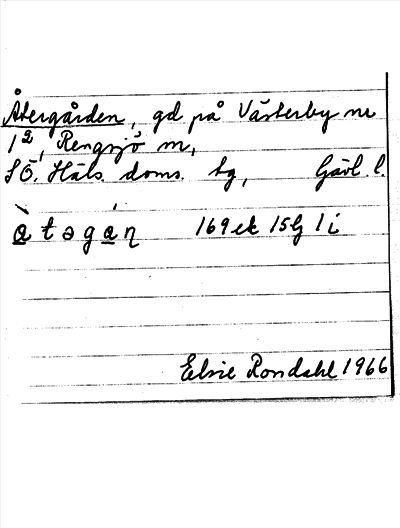 Återgården, gd på Västerby nr
1², Rengsjö sn,
SÖ. Häls. doms. tg, Gävl. l.
à t ə g á ṇ 169 ek 15G 1 i
Elsie Rondahl 1966